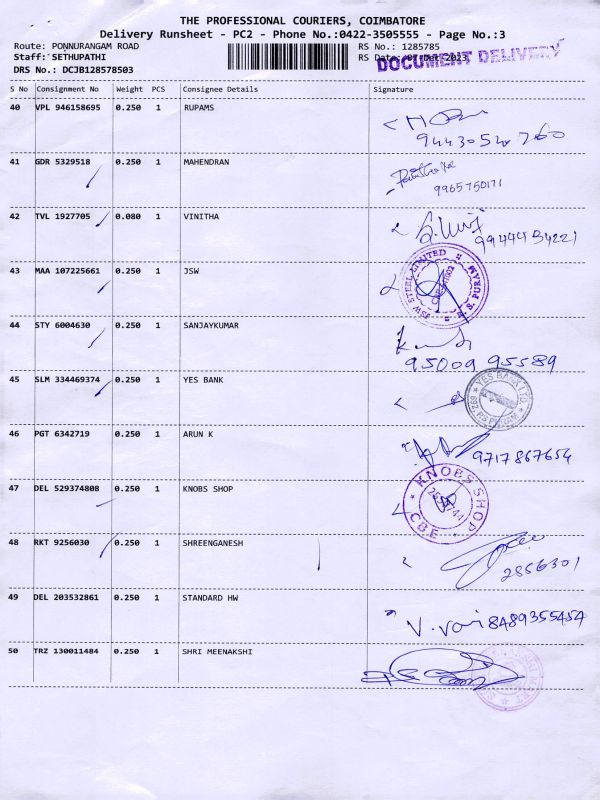 THE PROFESSIONAL COURIERS, COIMBATORE
Delivery Runsheet - PC2 - Phone No.:0422-3505555 - Page No.:3
Route: PONNURANGAM ROAD
RS No.: 1285785
Staff: SETHUPATHI
RS Date: Dec 2023
DOCUMENT DELIVERY
DRS No.: DCJB128578503
S No Consignment No Weight PCS Consignee Details Signature
40 VPL 946158695 0.250 1 RUPAMS
41 GDR 5329518 0.250 1 MAHENDRAN
9965750171
42 TVL 1927705 0.080 1 VINITHA
43 MAA 107225661 0.250 1 JSW
JSW STEEL LIMITED
R. S. PURAM
44 STY 6004630 0.250 1 SANJAYKUMAR
95009 95589
45 SLM 334469374 0.250 1 YES BANK
YES BANK LTD.
46 PGT 6342719 0.250 1 ARUN K
9717867654
47 DEL 529374808 0.250 1 KNOBS SHOP
KNOBS SHOP
CBE
48 RKT 9256030 0.250 1 SHREENGANESH
2856301
49 DEL 203532861 0.250 1 STANDARD HW
8489355454
50 TRZ 130011484 0.250 1 SHRI MEENAKSHI